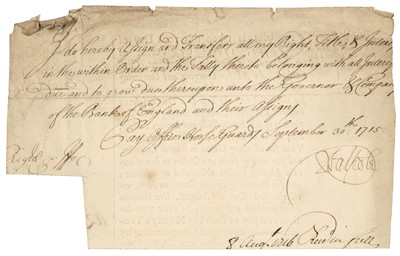 I do hereby Assign and Transferr all my Right, Title, & Interest
in the within Order and the Tally thereto belonging with all Interest
due and to grow due thereupon unto the Governor & Company
of the Bank of England and their Assigns
Pay Office Horse Guards September 30th. 1715.
8 Augt. 1716